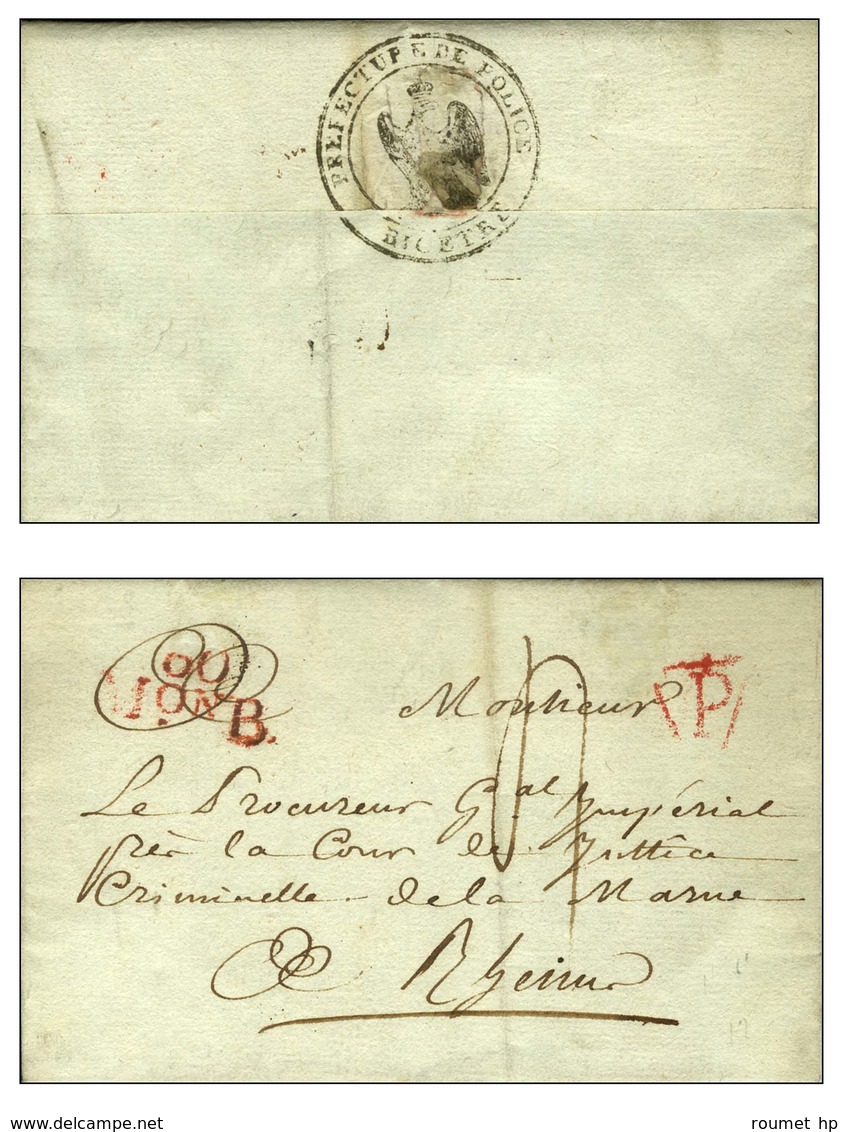 PREFECTURE DE POLICE
BICETRE
60
MON B.
P
Monsieur
Le Procureur G.al Impérial
près la Cour de Justice
Criminelle de la Marne
A Rheims
roumet hp